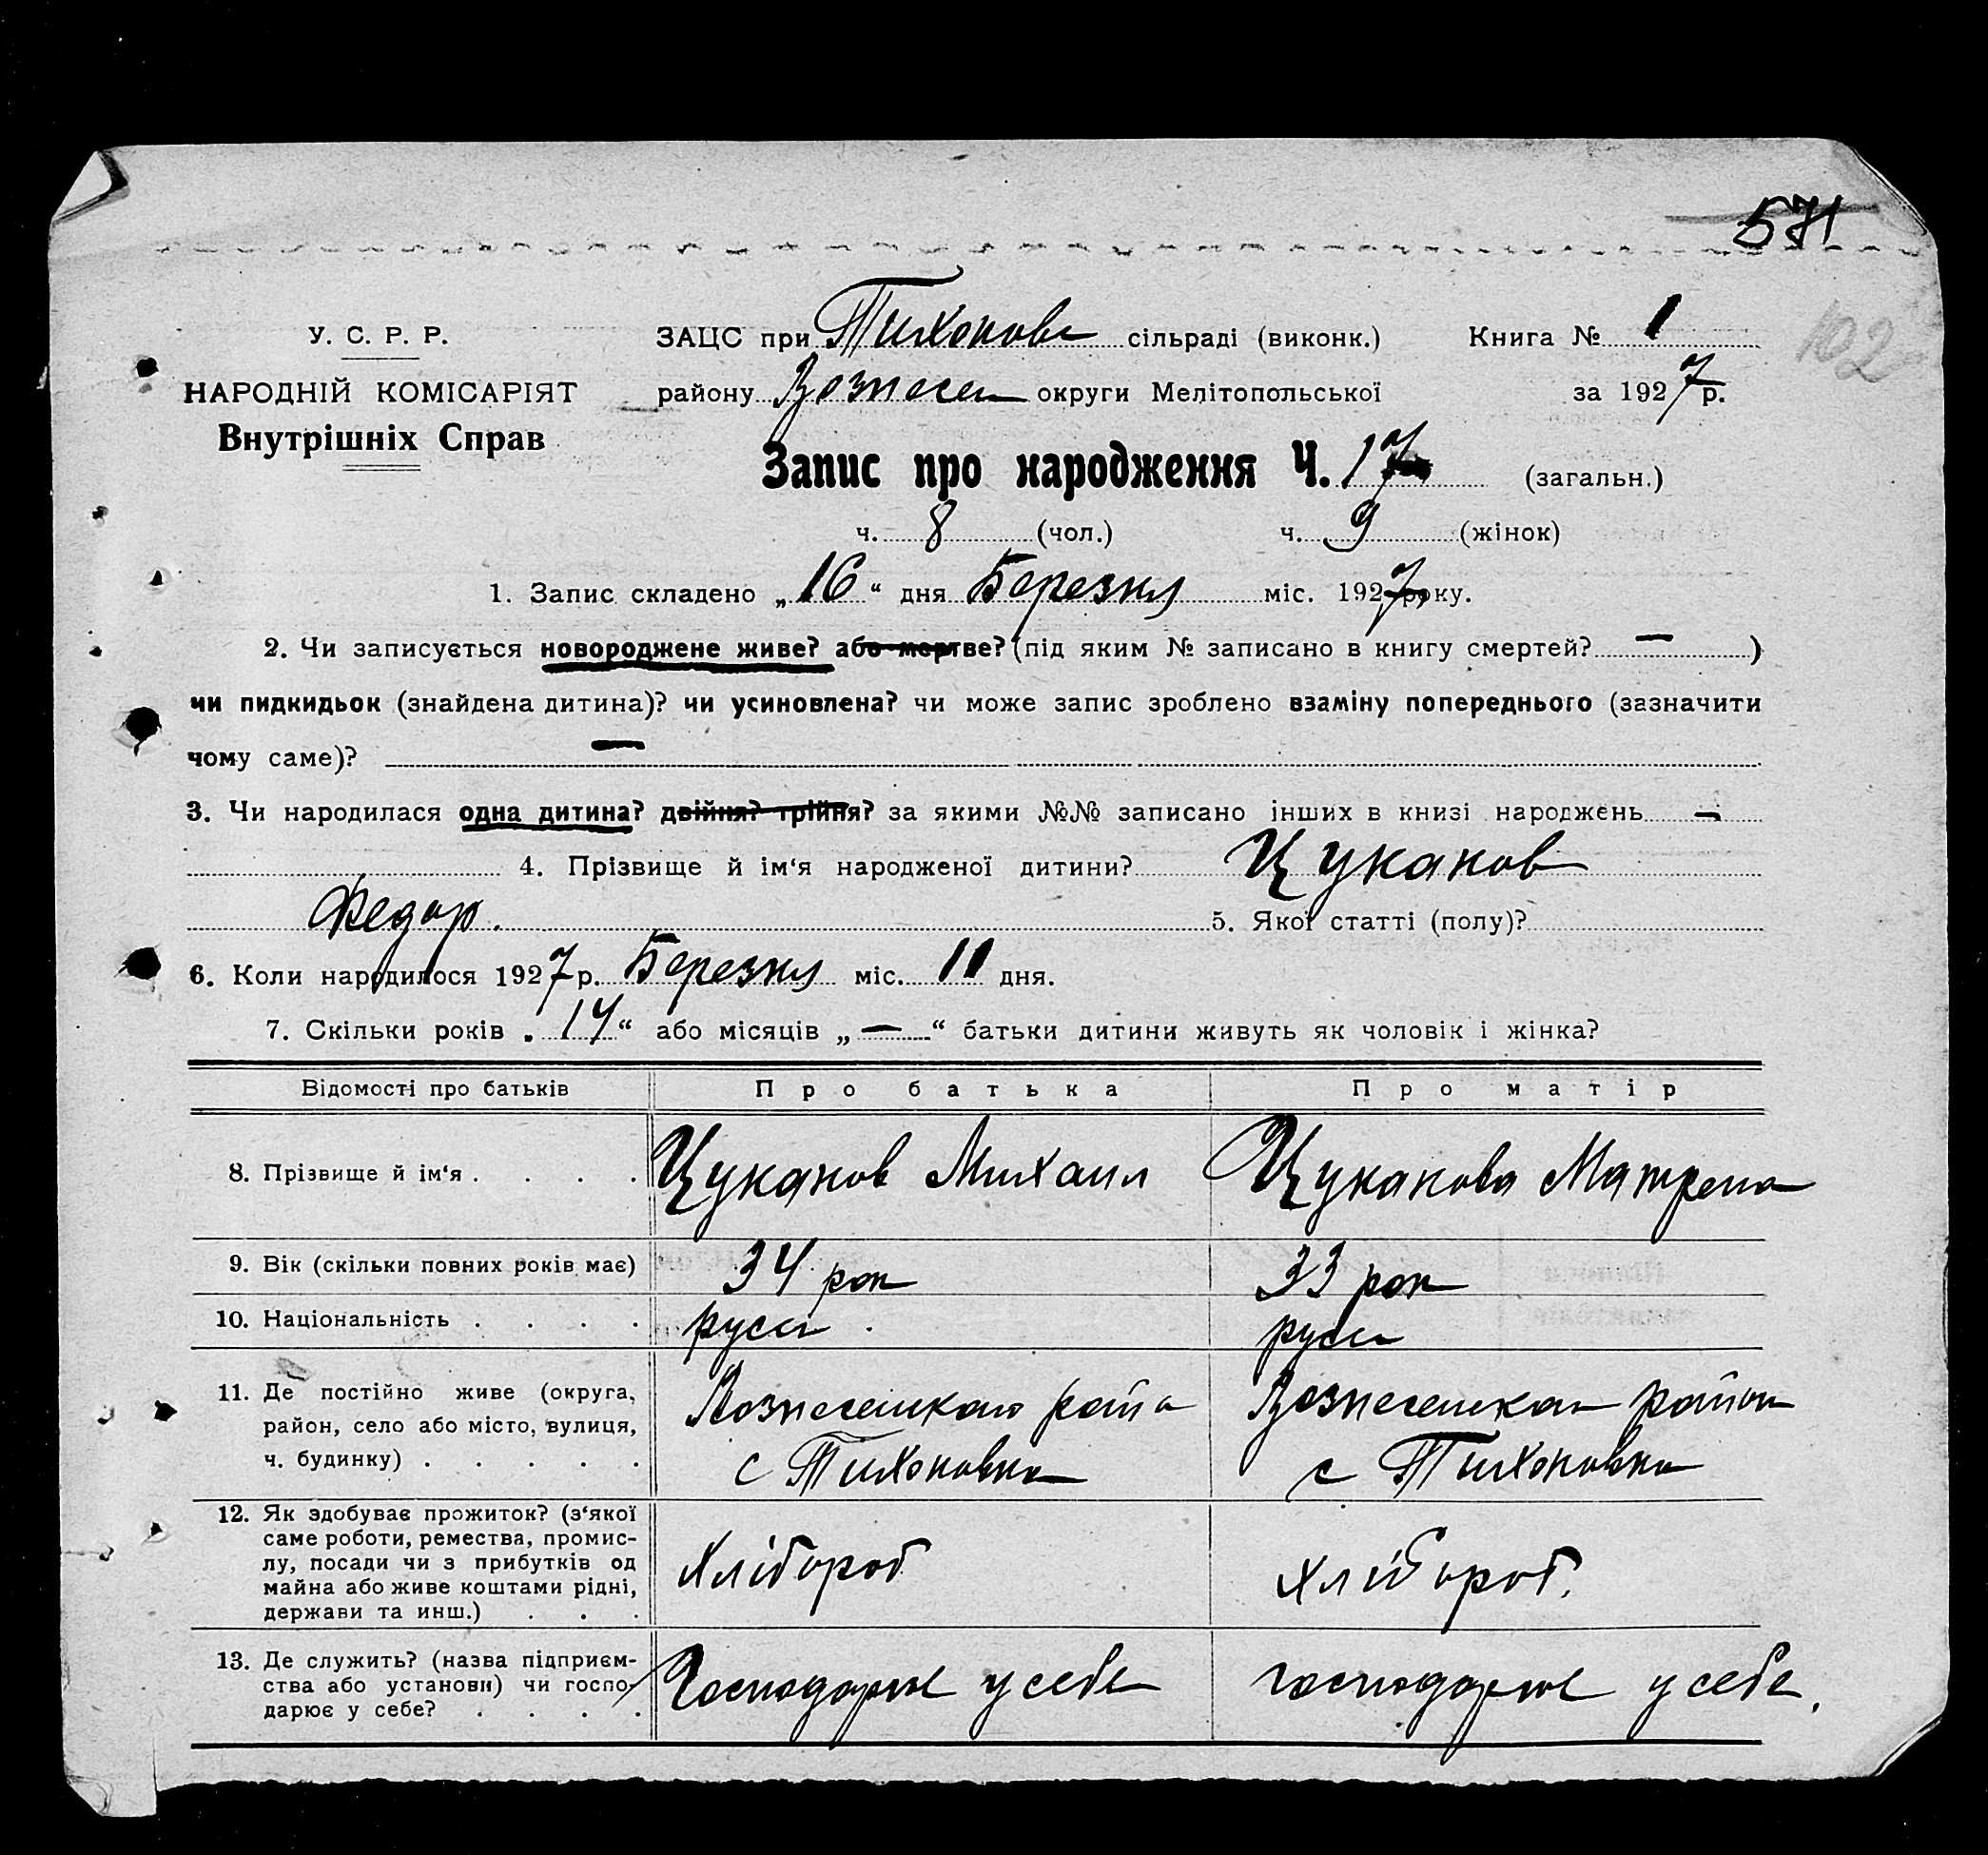 571
102
У. С. Р. Р.
НАРОДНІЙ КОМІСАРІЯТ
Внутрішніх Справ
ЗАЦС при Тихонов сільраді (виконк.) Книга № 1
району Вознесен округи Мелітопольської за 1927 р.
Запис про народження Ч. 17 (загальн.)
ч. 8 (чол.) ч. 9 (жінок)
1. Запис складено „16“ дня Березня міс. 1927 року.
2. Чи записується новороджене живе? або мертве? (під яким № записано в книгу смертей? — )
чи пидкидьок (знайдена дитина)? чи усиновлена? чи може запис зроблено взаміну попереднього (зазначити
чому саме)? —
3. Чи народилася одна дитина? двійня? трійня? за якими №№ записано інших в книзі народжень —
4. Прізвище й ім‘я народженої дитини? Цуканов
Федор. 5. Якої статті (полу)?
6. Коли народилося 1927 р. Березня міс. 11 дня.
7. Скільки років „14“ або місяців „—“ батьки дитини живуть як чоловік і жінка?
Відомості про батьків Про батька Про матір
8. Прізвище й ім‘я . . . . Цуканов Михаил Цуканова Матрена
9. Вік (скільки повних років має) 34 рок 33 рок
10. Національність . . . . русск русск
11. Де постійно живе (округа,
район, село або місто, вулиця,
ч. будинку) . . . . .
Вознесенкаго района
с Тихоновка
Вознесенкаго района
с Тихоновка
12. Як здобуває прожиток? (з‘якої
саме роботи, ремества, промис-
лу, посади чи з прибутків од
майна або живе коштами рідні,
держави та инш.) . . .
хлібороб
хлібороб.
13. Де служить? (назва підприєм-
ства або установи) чи госпо-
дарює у себе? . . . .
Господарює у себе
господарює у себе.